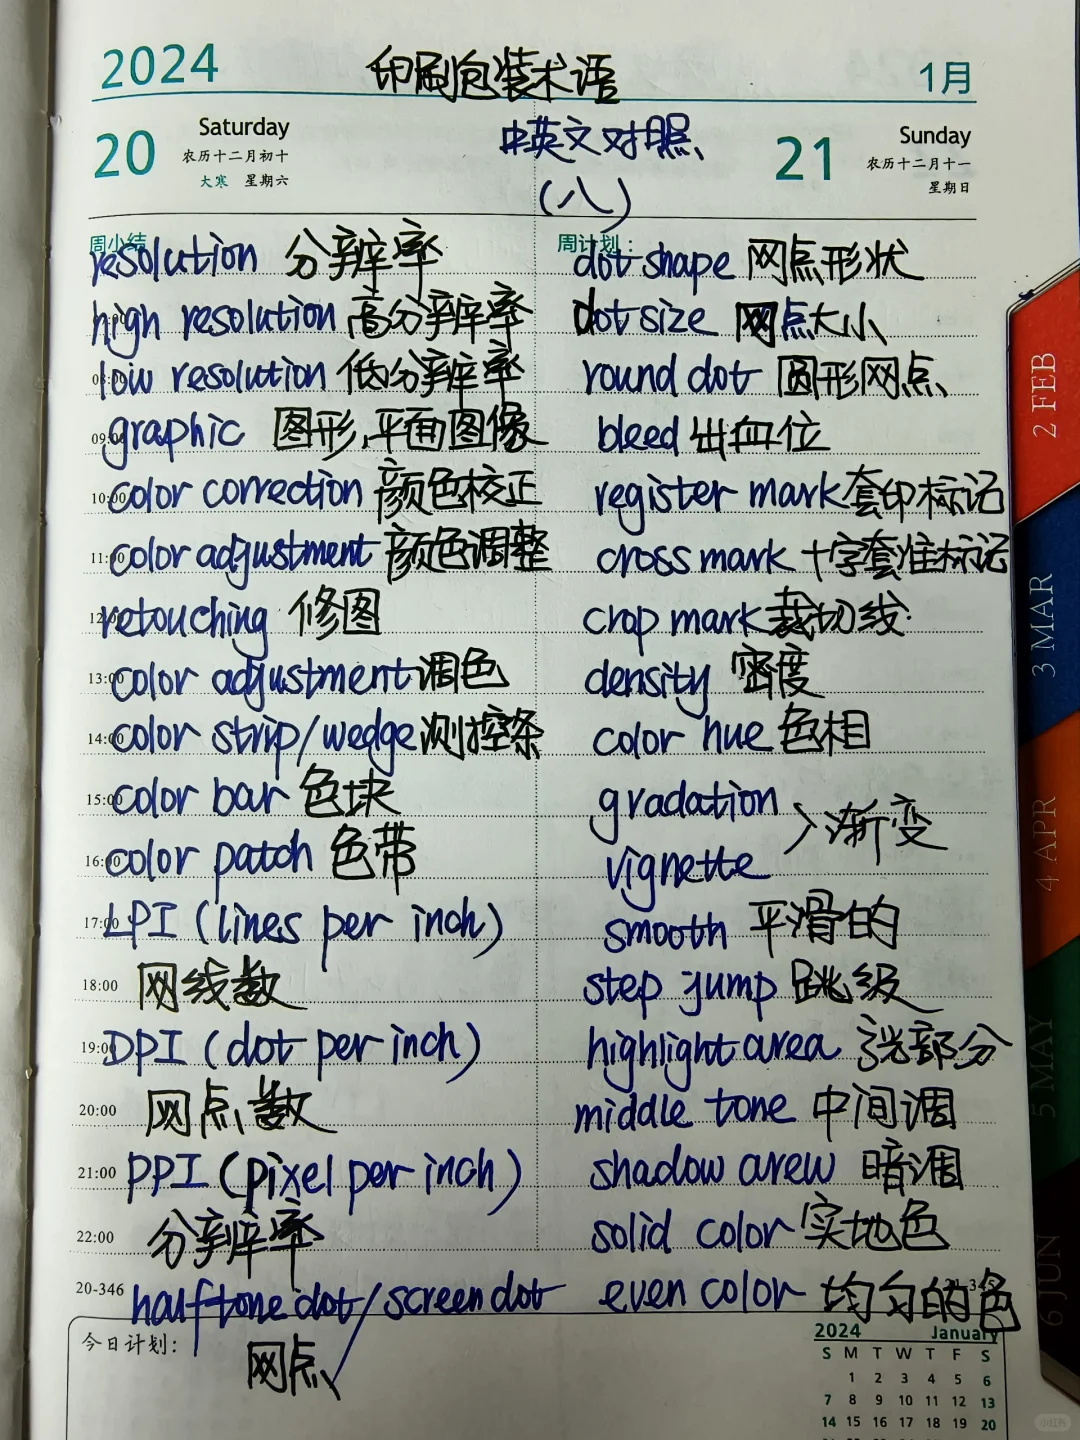 2024
印刷包装术语
1月
20
Saturday
农历十二月初十
大寒 星期六
中英文对照
(八)
21
Sunday
农历十二月十一
星期日
周小结
resolution 分辨率
high resolution 高分辨率
08:00 low resolution 低分辨率
09:00 graphic 图形,平面图像
10:00 color correction 颜色校正
11:00 color adjustment 颜色调整
12:00 retouching 修图
13:00 color adjustment 调色
14:00 color strip/wedge 测控条
15:00 color bar 色块
16:00 color patch 色带
17:00 LPI (lines per inch)
18:00 网线数
19:00 DPI (dot per inch)
20:00 网点数
21:00 PPI (pixel per inch)
22:00 分辨率
20-346 halftone dot/screen dot
网点
周计划:
dot shape 网点形状
dot size 网点大小
round dot 圆形网点
bleed 出血位
register mark 套印标记
cross mark 十字套准标记
crop mark 裁切线
density 密度
color hue 色相
gradation
vignette
渐变
smooth 平滑的
step jump 跳级
highlight area 部分
middle tone 中间调
shadow arew 暗调
solid color 实地色
even color 均匀的色
今日计划:
2024 January
S M T W T F S
1 2 3 4 5 6
7 8 9 10 11 12 13
14 15 16 17 18 19 20
2 FEB
3 MAR
4 APR
5 MAY
6 JUN
小红书